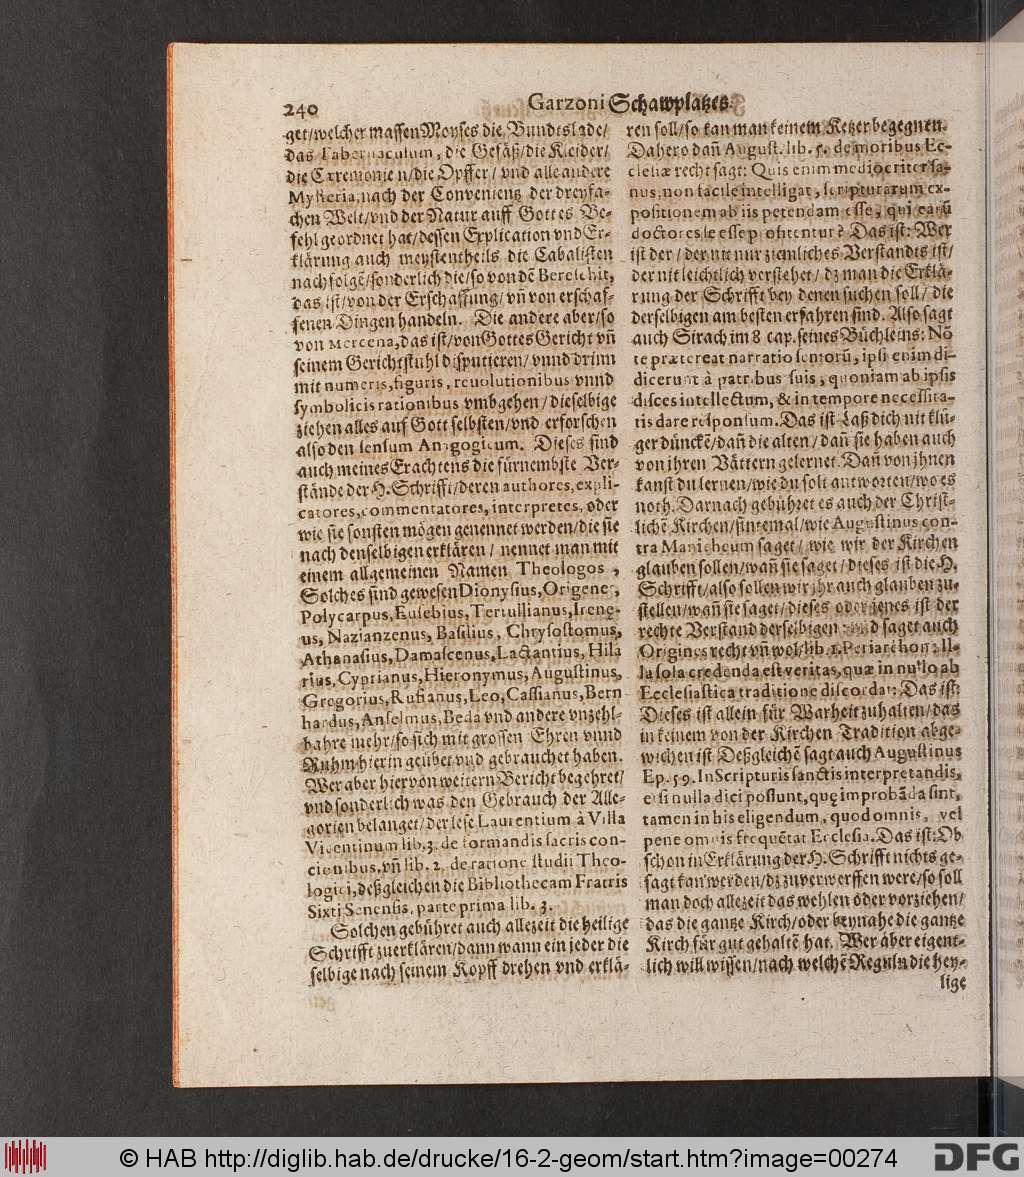 240
Garzoni Schawplatzes.
get/welcher massen Moyses die Bundtslade/
das Tabernaculum, die Gefäß/die Kleider/
die Ceremonien/die Opffer/vnd alle andere
Mysteria, nach der Convenientz der dreyfa-
chen Welt/vnd der Natur auff Gottes Be-
fehl geordnet hat/dessen Explication vnd Er-
klärung auch meystentheils die Cabalisten
nachfolgẽ/sonderlich die/so von dẽ Bereschit,
das ist/von der Erschaffung/vñ von erschaf-
fenen Dingen handeln. Die andere aber/so
von Mercena, das ist/von Gottes Gericht vñ
seinem Gerichtstuhl disputieren/vnnd drinn
mit numeris, figuris, reuolutionibus vnnd
symbolicis rationibus vmbgehen/dieselbige
ziehen alles auf Gott selbsten/vnd erforschen
also den sensum Anagogicum. Dieses sind
auch meines Erachtens die fürnembste Ver-
stände der H. Schrifft/deren authores, expli-
catores, commentatores, interpretes, oder
wie sie sonsten mögen genennet werden/die sie
nach denselbigen erklären/nennet man mit
einem allgemeinen Namen Theologos,
Solches sind gewesen Dionysius, Origenes,
Polycarpus, Eusebius, Tertullianus, Irenę-
us, Nazianzenus, Basilius, Chrysostomus,
Athanasius, Damascenus, Lactantius, Hila
rius, Cyprianus, Hieronymus, Augustinus,
Gregorius, Rufianus, Leo, Cassianus, Bern
hardus, Anselmus, Beda vnd andere vnzehl-
bahre mehr/so sich mit grossen Ehren vnnd
Ruhm hierin geübet vnd gebrauchet haben.
Wer aber hiervon weitern Bericht begehret/
vnd sonderlich was den Gebrauch der Alle-
gorien belanget/der lese Laurentium à Villa
Vicentinum lib. 3. de formandis sacris con-
cionibus, vñ lib. 2. de ratione studii Theo-
logici, deßgleichen die Bibliothecam Fratris
Sixti Senensis, parte prima lib. 3.
Solchen gebühret auch allezeit die heilige
Schrifft zuerklären/dann wann ein jeder die
selbige nach seinem Kopff drehen vnd erklä-
ren soll/so kan man keinem Ketzer begegnen.
Dahero dañ August. lib. 5. de moribus Ec-
clesiæ recht sagt: Quis enim mediocriter sa-
nus, non facile intelligat, scripturarum ex-
positionem ab iis petendam esse, qui earũ
doctores se esse profitentur? Das ist: Wer
ist der/der nit nur ziemliches Verstandts ist/
der nit leichtlich verstehet/dz man die Erklä-
rung der Schrifft bey denen suchen soll/die
derselbigen am besten erfahren sind. Also sagt
auch Sirach im 8 cap. seines Büchleins: Nõ
te prætereat narratio seniorũ, ipsi enim di-
dicerunt à patribus suis, quoniam ab ipsis
disces intellectum, & in tempore necessita-
tis dare responsum. Das ist Laß dich nit klü-
ger dünckẽ/dañ die alten/dañ sie haben auch
von jhren Vättern gelernet. Dañ von jhnen
kanst du lernen/wie du solt antworten/wo es
noth. Darnach gebühret es auch der Christ-
lichẽ Kirchen/sintemal/wie Augustinus con-
tra Manicheum saget/wie wir der Kirchen
glauben sollen/wañ sie saget/dieses ist die H.
Schrifft/also sollen wir jhr auch glauben zu-
stellen/wañ sie saget/dieses oder jenes ist der
rechte Verstand derselbigen: vnd saget auch
Origines recht vñ wol/lib. 1. Periarchon: Il-
la sola credenda est veritas, quæ in nullo ab
Ecclesiastica traditione discordat: Das ist:
Dieses ist allein für Warheit zuhalten/das
in keinem von der Kirchen Tradition abge-
wichen ist Deßgleichẽ sagt auch Augustinus
Ep. 59. In Scripturis sanctis interpretandis,
etsi nulla dici possunt, quę improbãda sint,
tamen in his eligendum, quod omnis, vel
pene omnis frequẽtat Ecclesia. Das ist: Ob
schon in Erklärung der H. Schrifft nichts ge-
sagt kan werden/dz zuverwerffen were/so soll
man doch allezeit das wehlen oder vorziehen/
das die gantze Kirch/oder beynahe die gantze
Kirch für gut gehaltẽ hat. Wer aber eigent-
lich will wissen/nach welchẽ Reguln die hey-
lige
© HAB http://diglib.hab.de/drucke/16-2-geom/start.htm?image=00274
DFG